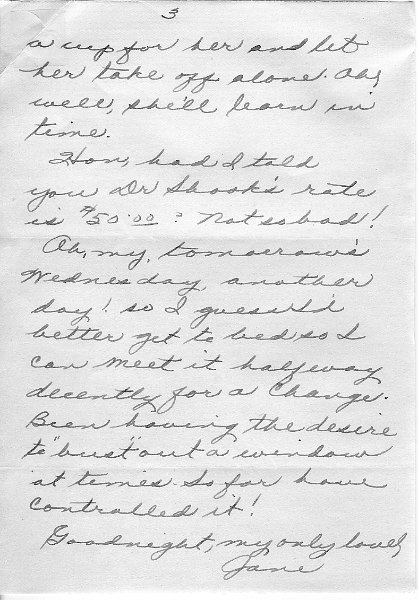 3
a cup for her and let
her take off alone. Oh,
well, she'll learn in
time.
Hon, had I told
you Dr Shook's rate
is $50.00? Not so bad!
Oh, my, tomorrow's
Wednesday, another
day! so I guess I'd
better get to bed so I
can meet it halfway
decently for a change.
Been having the desire
to "bust" out a window
at times. So far have
controlled it!
Goodnight, my only love,
Jane